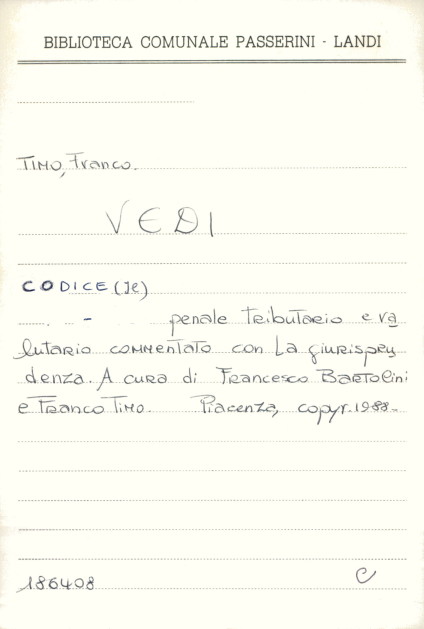 BIBLIOTECA COMUNALE PASSERINI - LANDI
TIMO, Franco.
VEDI
CODICE (Je)
- penale tributario e va
lutario commentato con la giurispru
denza. A cura di Francesco Bartolini
e Franco Timo. Piacenza, copyr. 1988.
186408 C